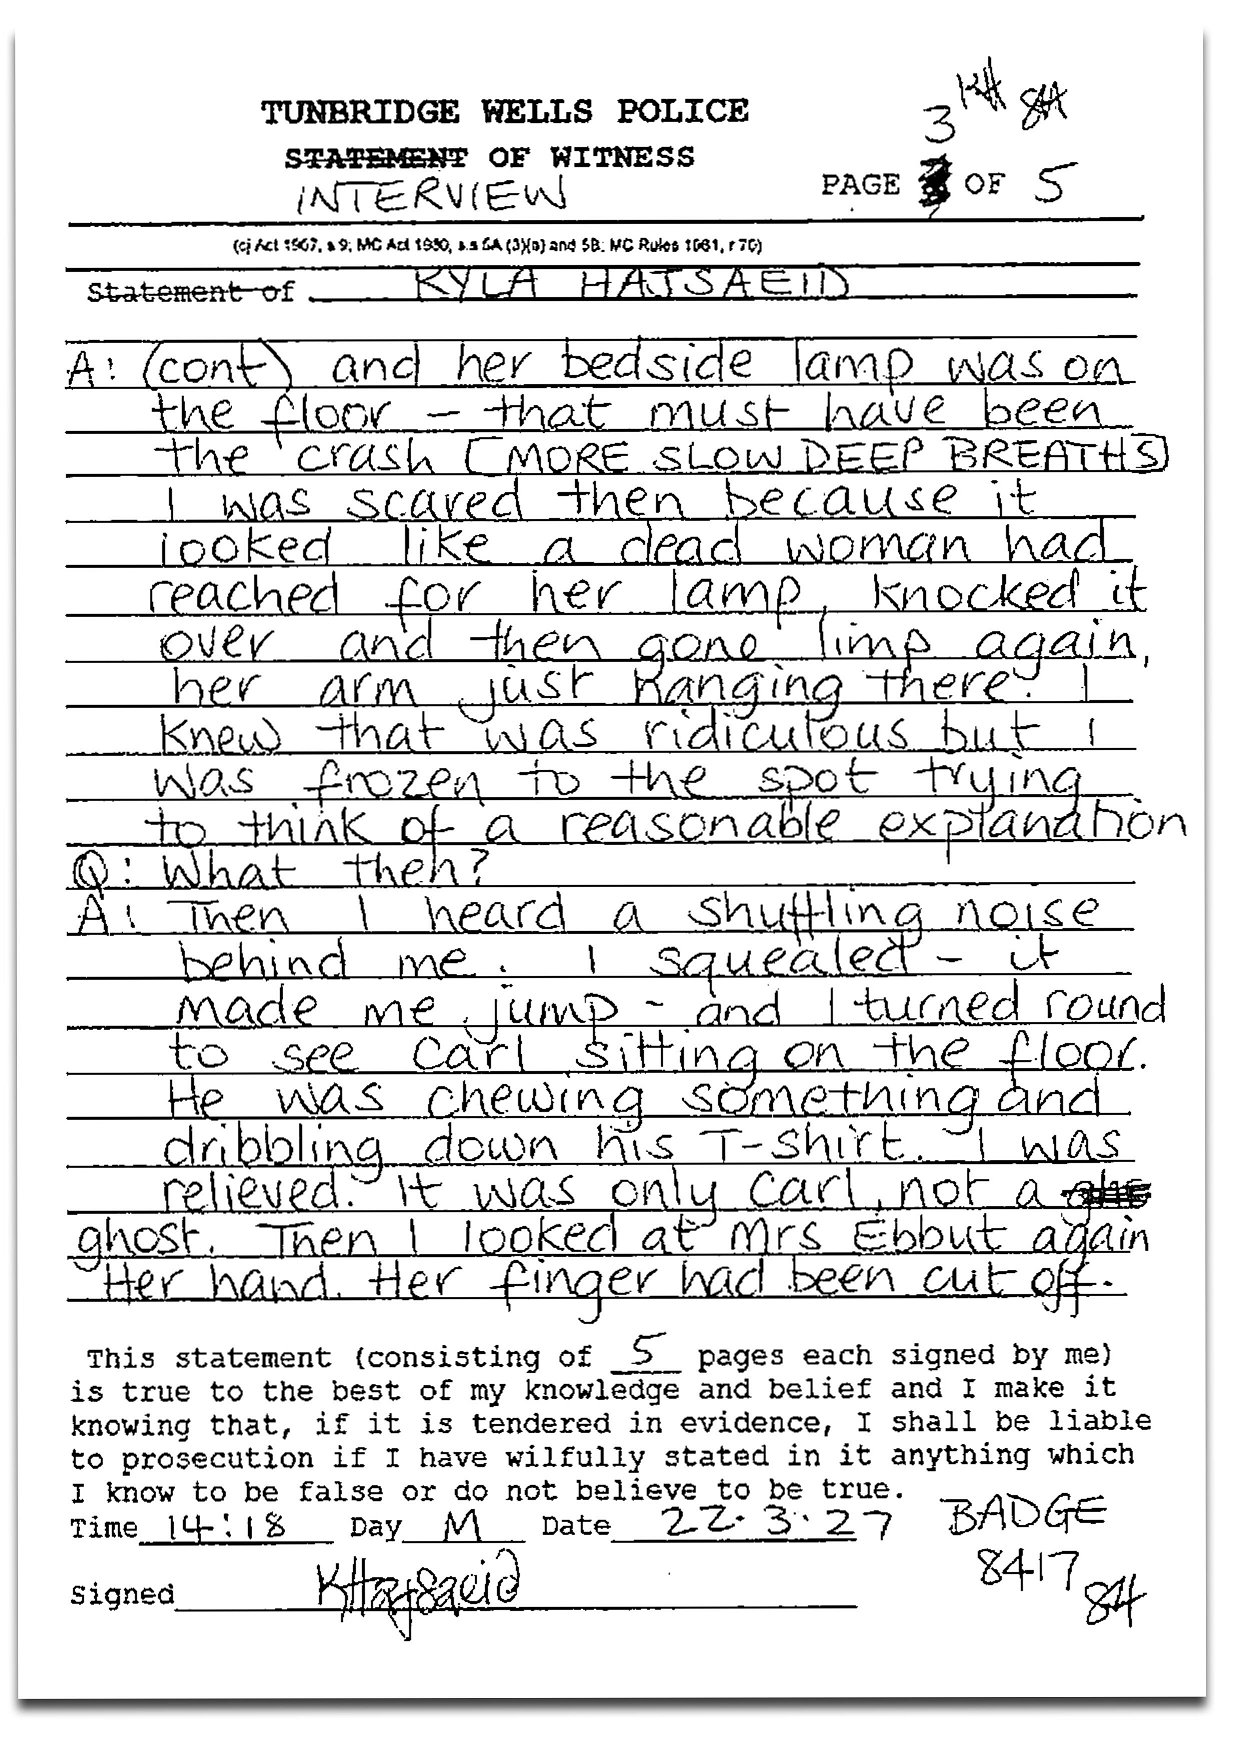 TUNBRIDGE WELLS POLICE
STATEMENT OF WITNESS
INTERVIEW
3 KH 8H
PAGE OF 5
(cj Act 1967, s 9; MC Act 1980, s.s 5A (3)(a) and 5B; MC Rules 1981, r 70)
Statement of KYLA HAJSAEID
A: (cont) and her bedside lamp was on
the floor - that must have been
the crash [MORE SLOW DEEP BREATHS]
I was scared then because it
looked like a dead woman had
reached for her lamp, knocked it
over and then gone limp again,
her arm just hanging there. I
knew that was ridiculous but I
was frozen to the spot trying
to think of a reasonable explanation
Q: What then?
A: Then I heard a shuffling noise
behind me. I squealed - it
made me jump - and I turned round
to see Carl sitting on the floor.
He was chewing something and
dribbling down his T-shirt. I was
relieved. It was only Carl, not a
ghost. Then I looked at Mrs Ebbut again
Her hand. Her finger had been cut off.
This statement (consisting of 5 pages each signed by me)
is true to the best of my knowledge and belief and I make it
knowing that, if it is tendered in evidence, I shall be liable
to prosecution if I have wilfully stated in it anything which
I know to be false or do not believe to be true.
Time 14:18 Day M Date 22.3.27
BADGE
8417
8H
Signed KHajsaeid